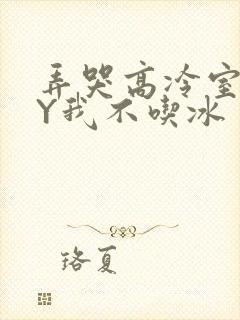 弄哭高冷室
Y我不喫冰
珞夏